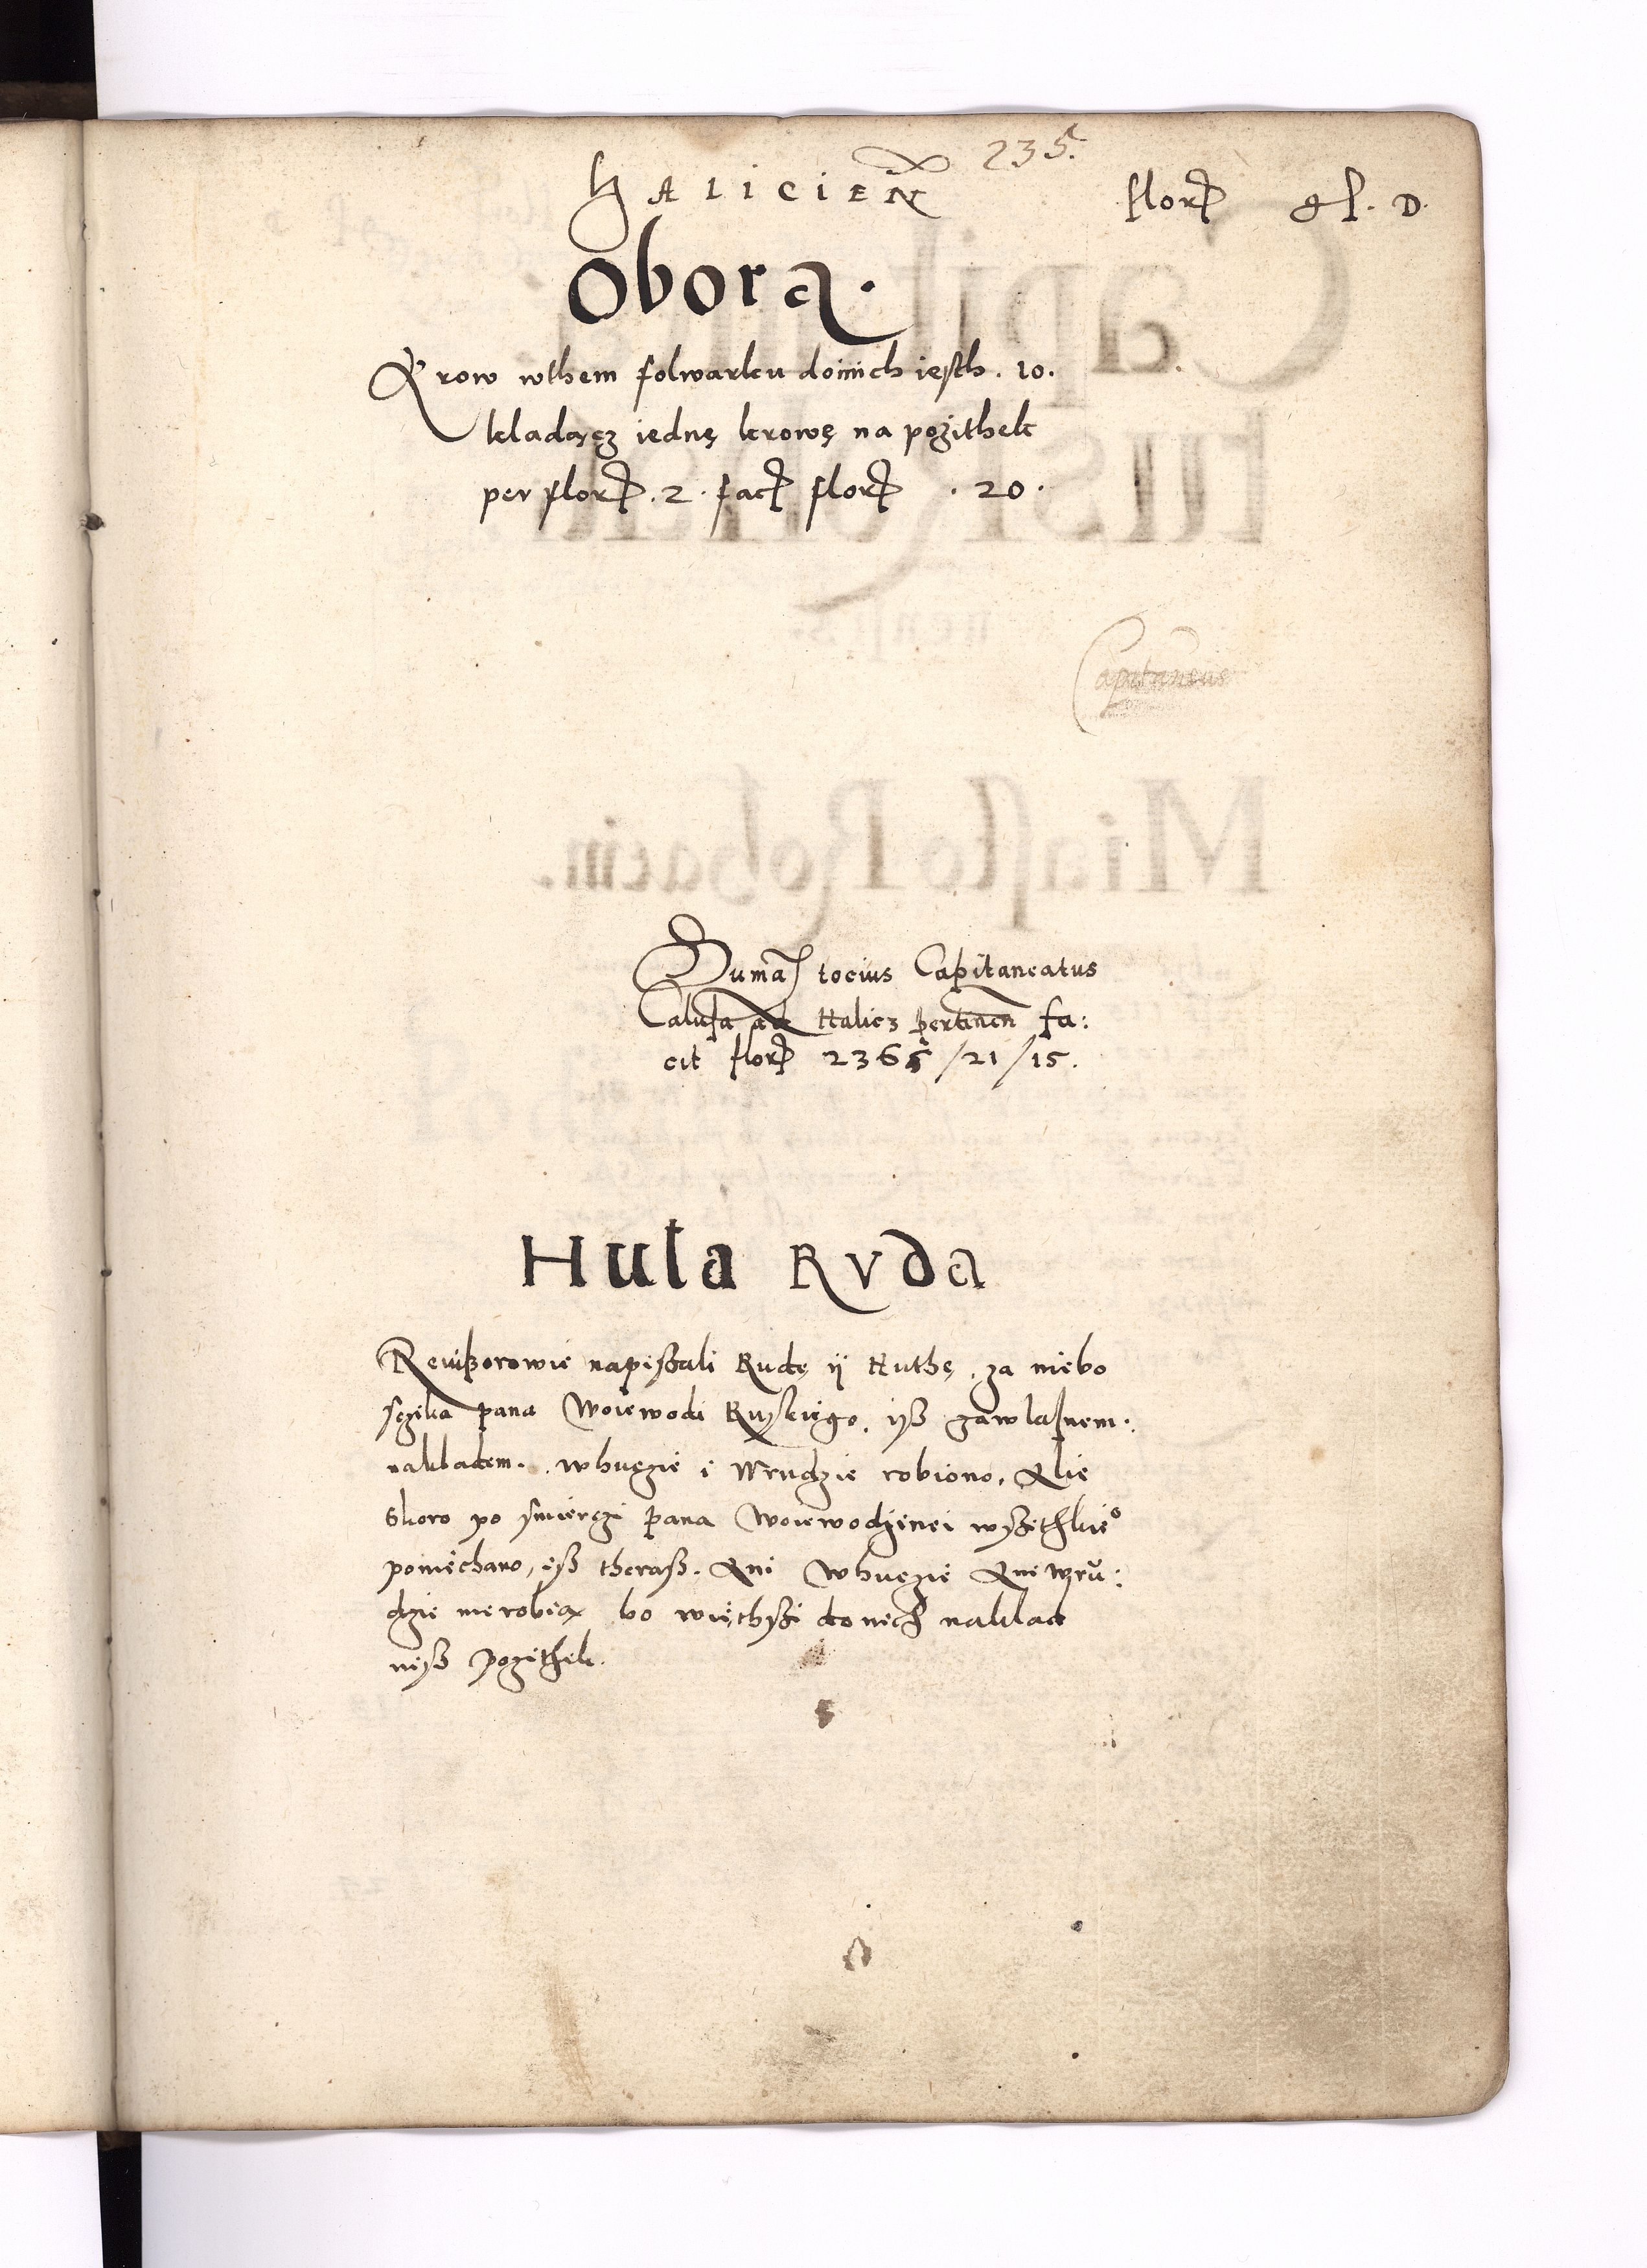 235.
Halicien̄
flor gs. D.
Obora.
Krow wthem folwarku doinich iesth. 10.
kladącz iednę krowę na pożithek
per flor. 2. fact flor . 20.
Capitaneus
Suma tocius Capitaneatus
Calusa ad Halicz pertinen fa:
cit flor 2365/21/15.
Huta Ruda
Reuizorowie napißali Rudę ij Huthę, za niebo
sczika pana Woiewodi Ruskiego, iß zawlasnem:
nakladem. whuczie i Wrudzie robiono, Alie
skoro po smierczi pana Woiewodzinei wßithkie°
poniechano, iß theraß. Ani whuczie Ani wru:
dzie nierobią bo więthßi do nich naklad
niß pozithek.